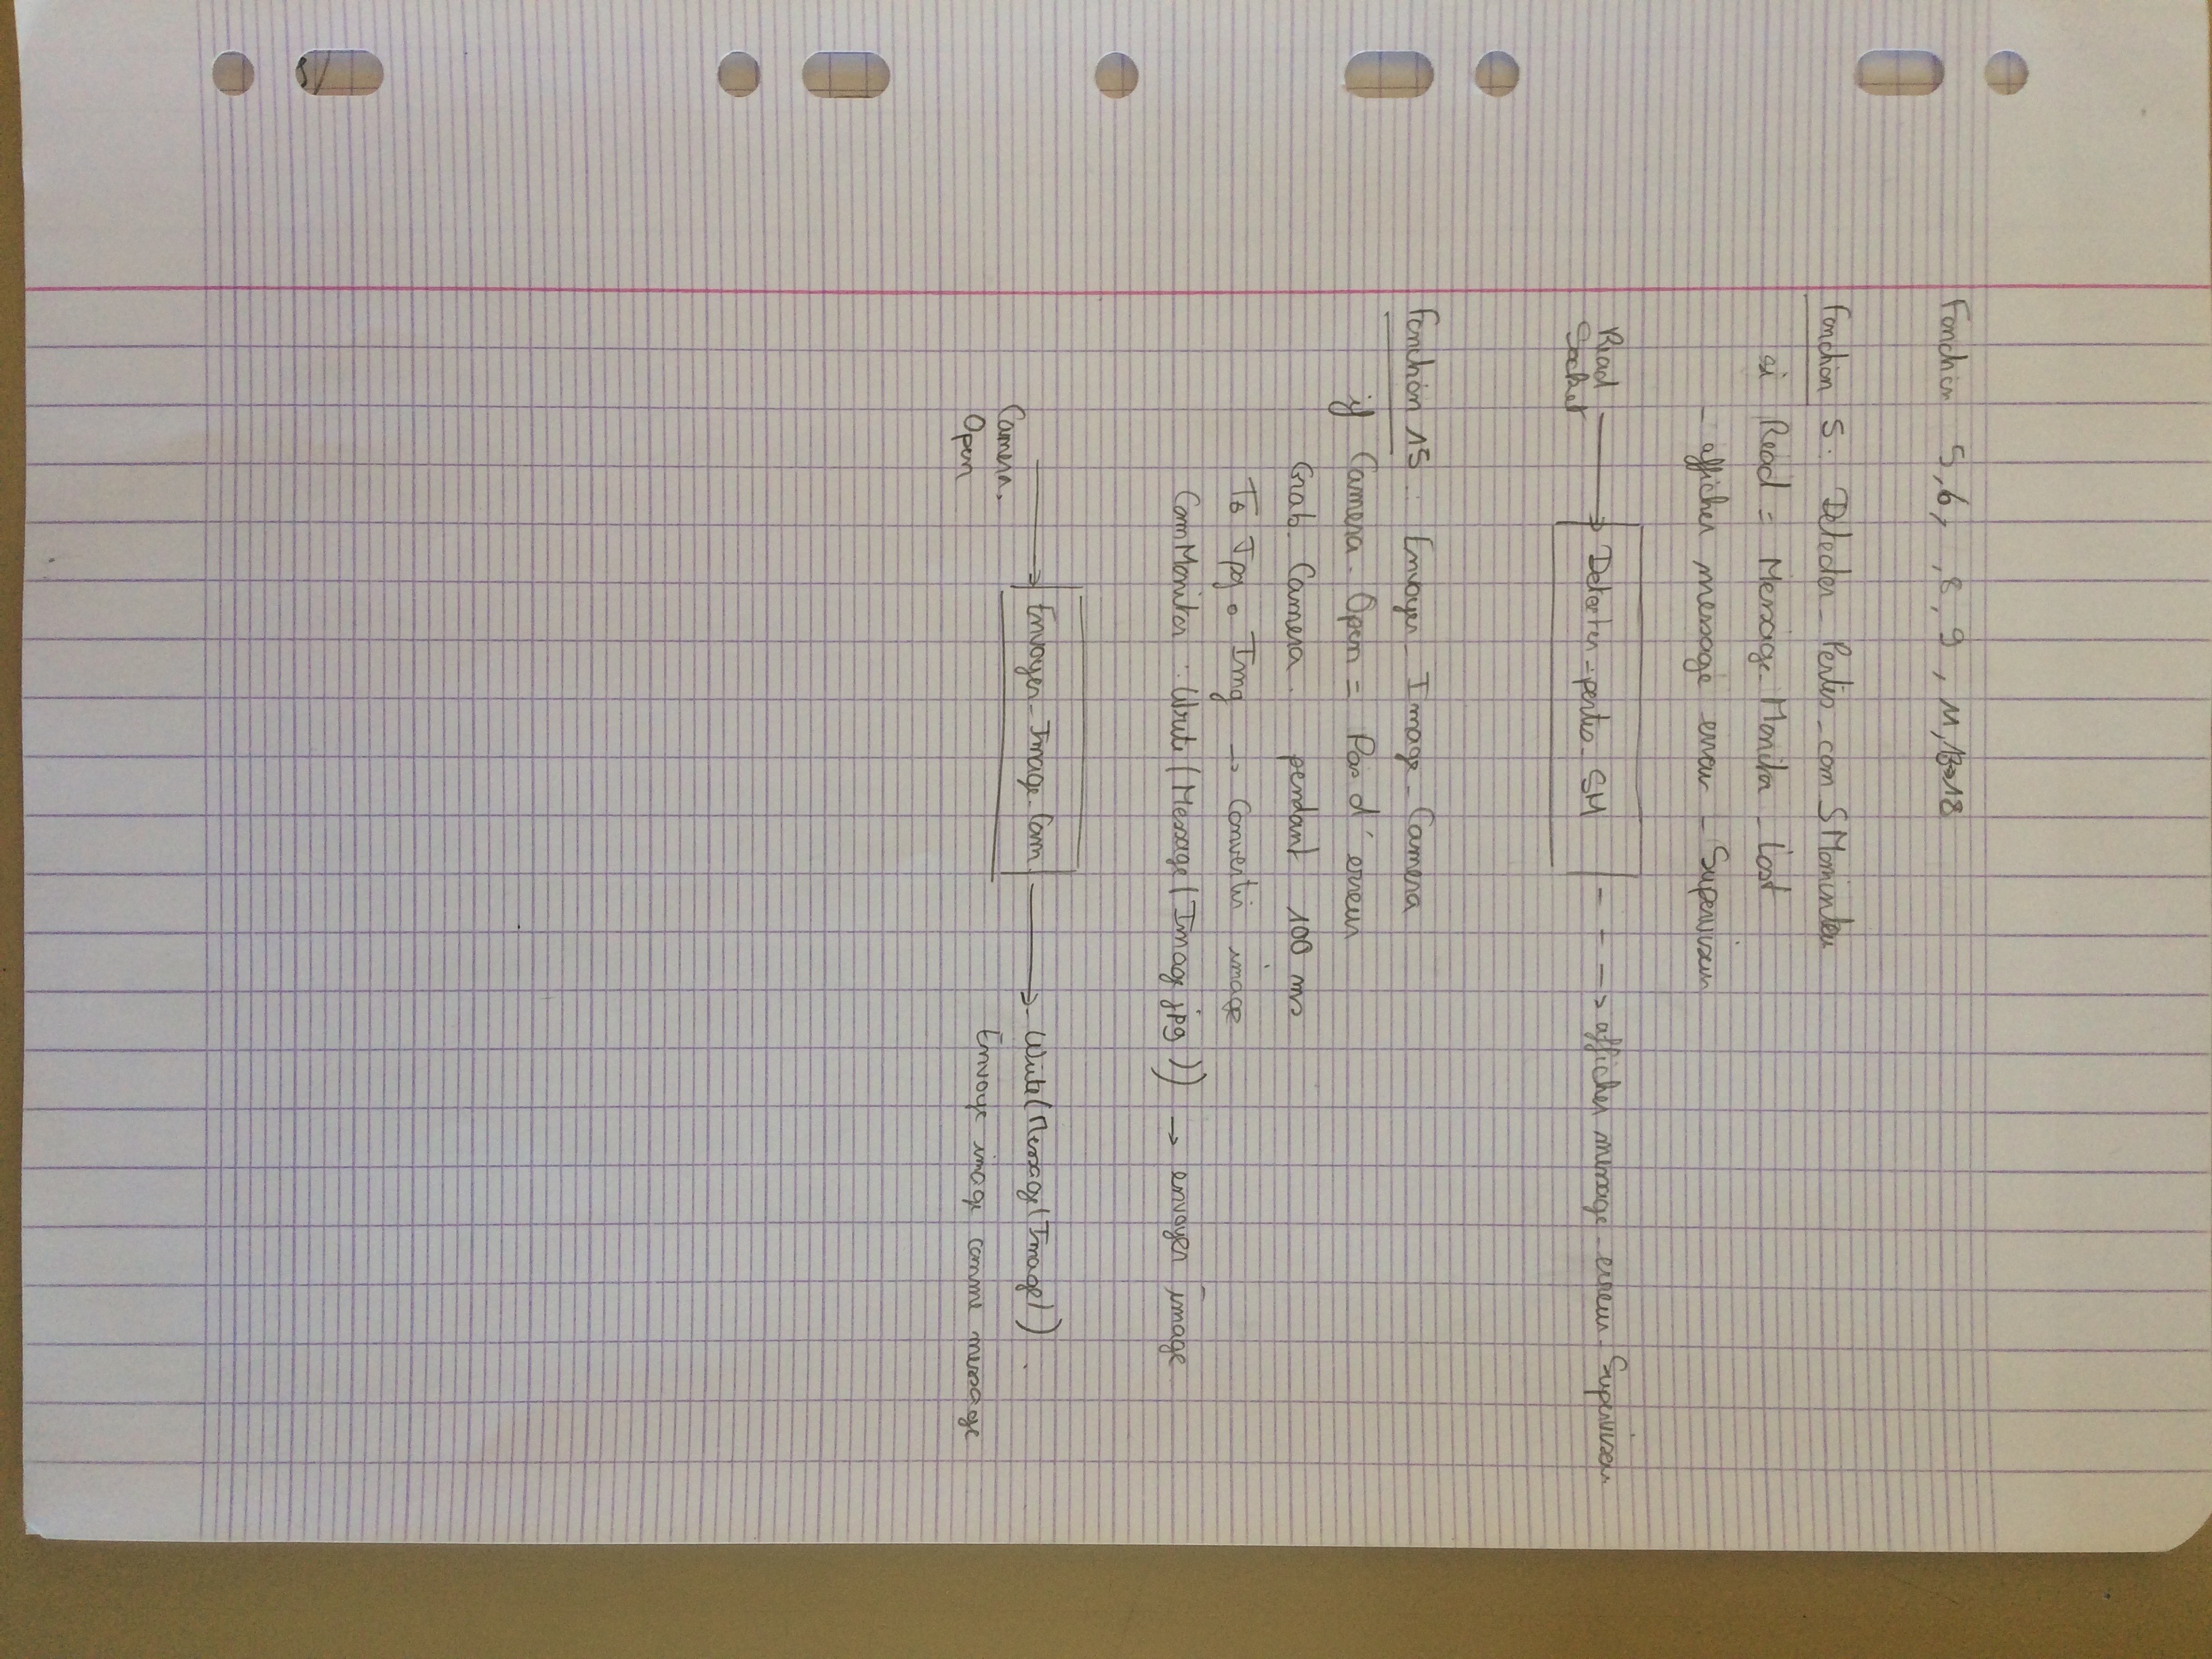 Fonction 5, 6, , 8, 9, 11, 18
Fonction 5. Detecter_Pertes_com SMoniteur
si Read = Message_Monitor_Lost
- afficher message erreur - Superviseur
Read Socket → Detecter_pertes_SM - - -> afficher message erreur_Superviseur
Fonction 15 : Envoyer_Image_Camera
if Camera.Open = Pas d'erreur
Grab. Camera. pendant 100 ms
To Jpg. Img → Convertir image
ComMonitor : Write (Message (Imag jpg)) → envoyer image
Camera. Open → Envoyer_Image_Cam → Write (Message (Image)).
Envoye image comme message